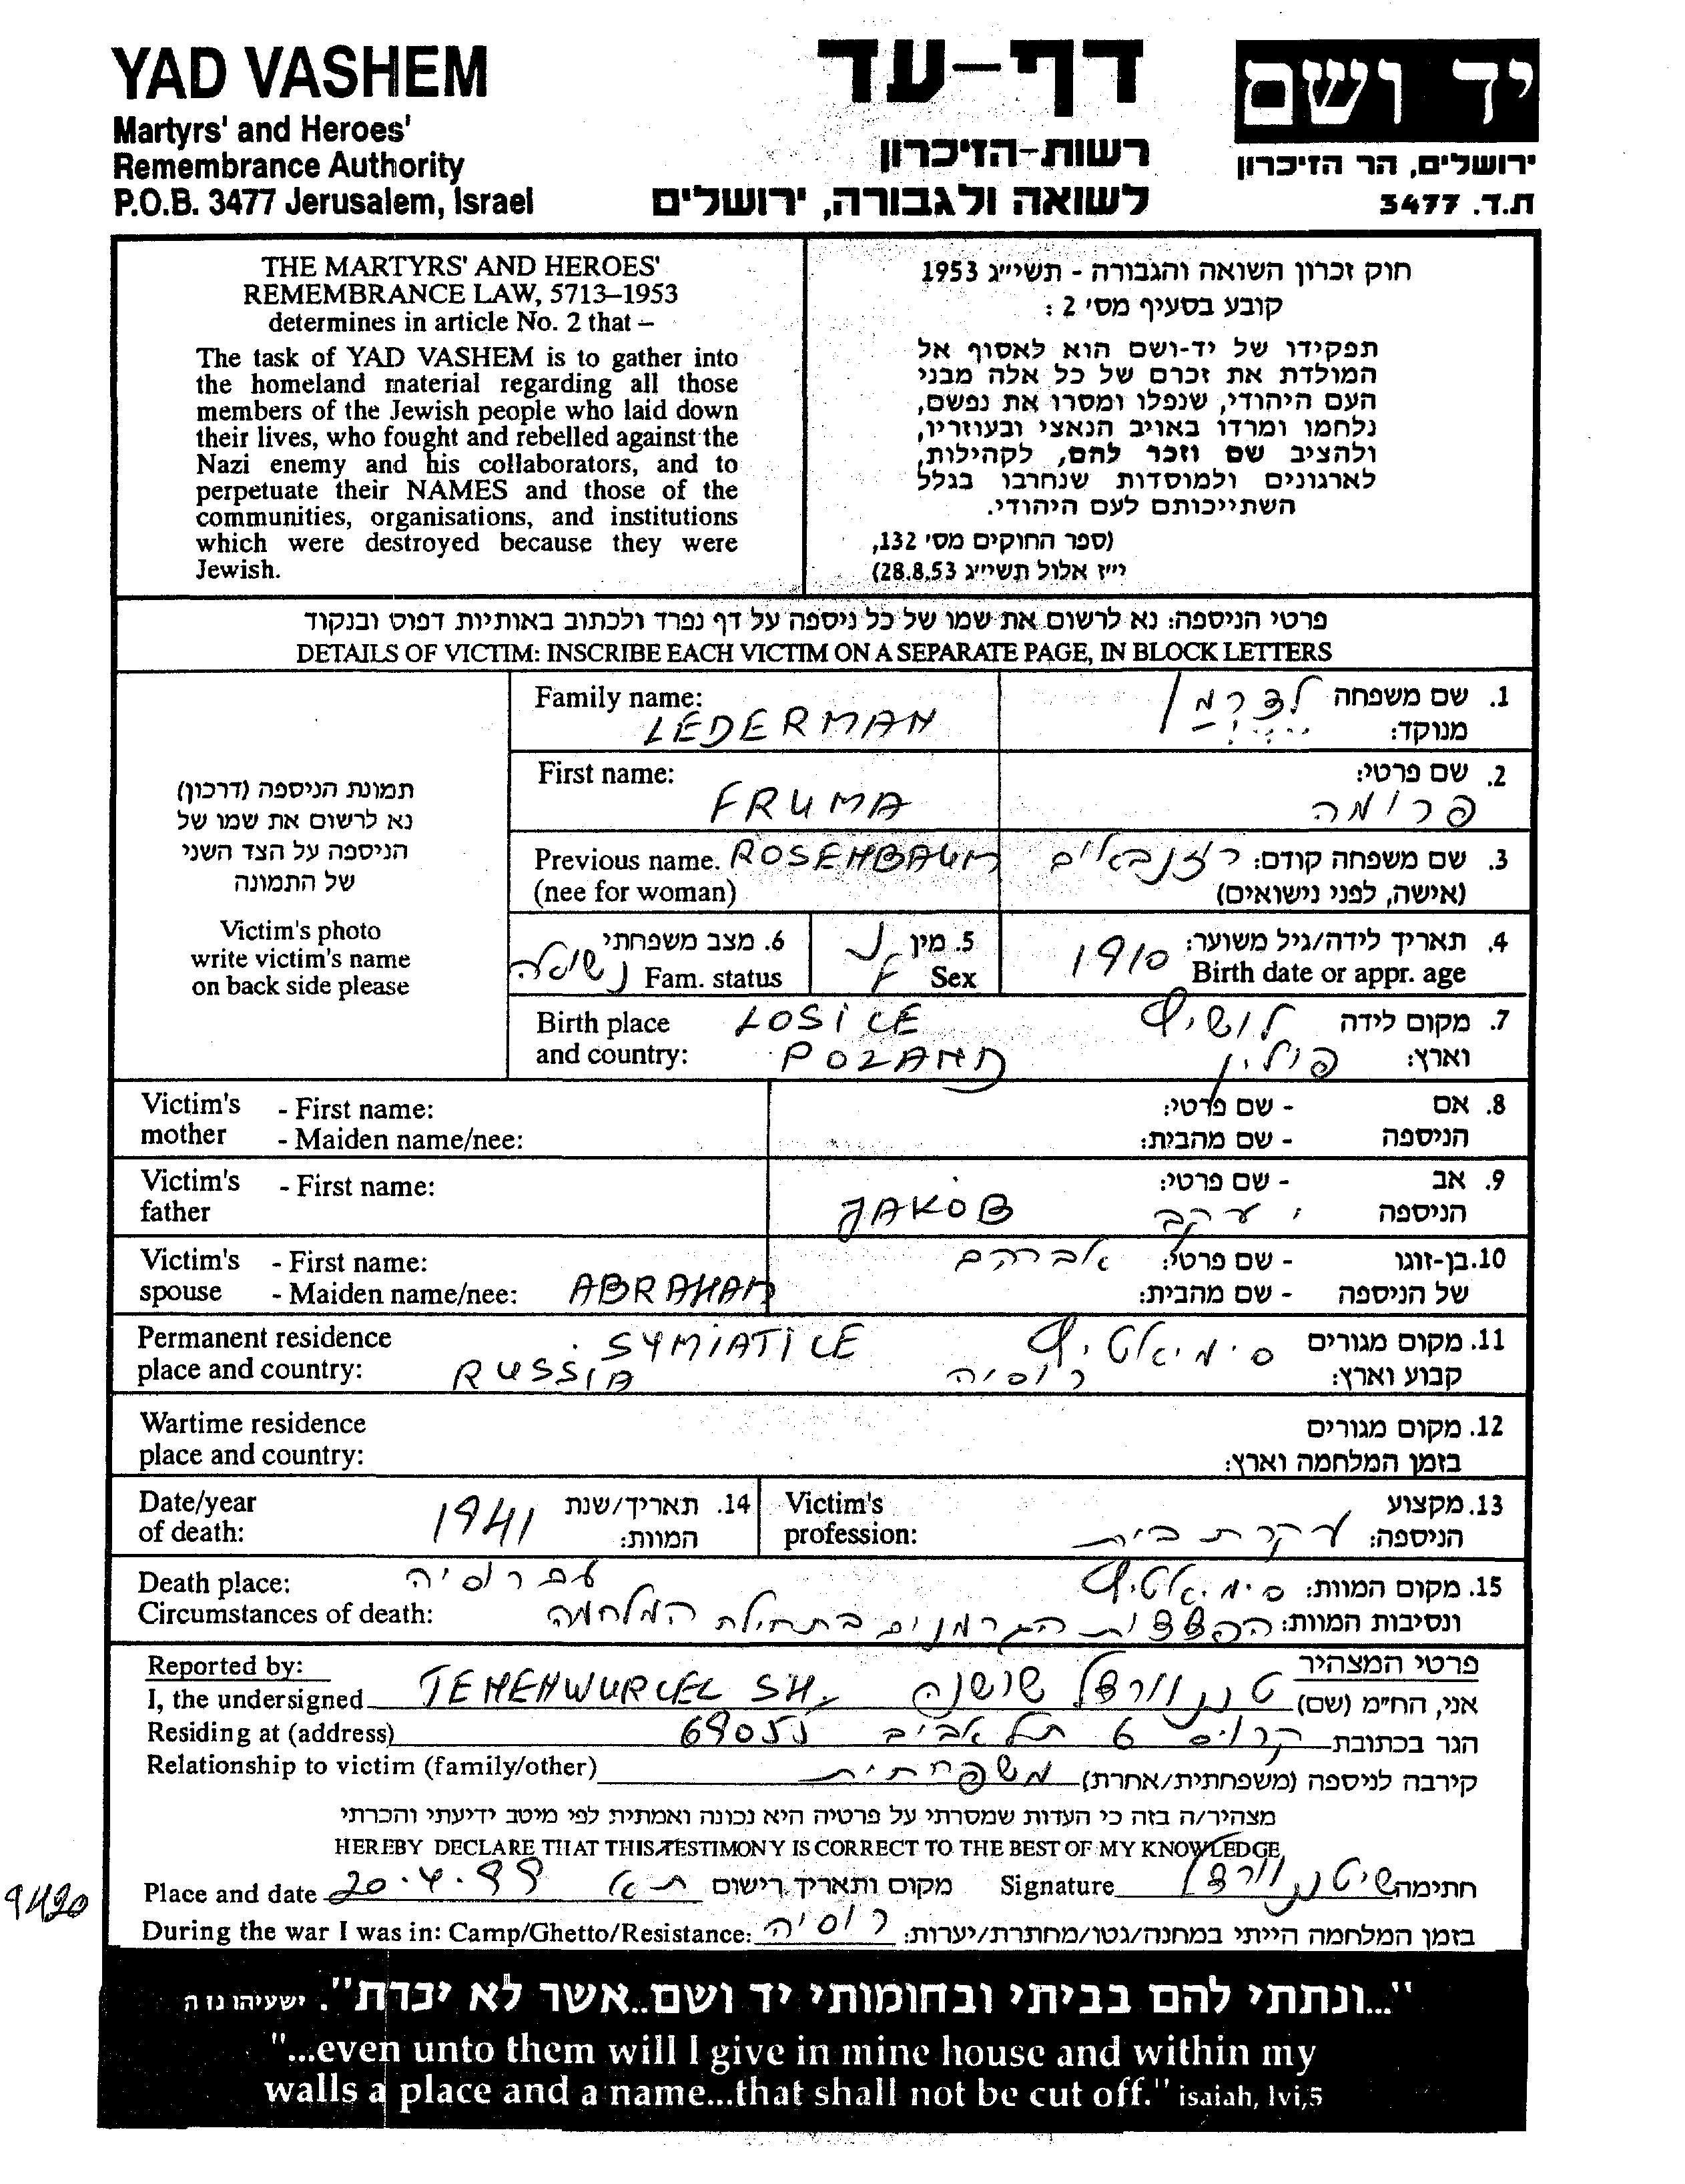 YAD VASHEM
Martyrs' and Heroes'
Remembrance Authority
P.O.B. 3477 Jerusalem, Israel
דף-עד
רשות-הזיכרון
לשואה ולגבורה, ירושלים
יד ושם
ירושלים, הר הזיכרון
ת.ד. 3477
THE MARTYRS' AND HEROES'
REMEMBRANCE LAW, 5713–1953
determines in article No. 2 that –
The task of YAD VASHEM is to gather into
the homeland material regarding all those
members of the Jewish people who laid down
their lives, who fought and rebelled against the
Nazi enemy and his collaborators, and to
perpetuate their NAMES and those of the
communities, organisations, and institutions
which were destroyed because they were
Jewish.
חוק זכרון השואה והגבורה - תשי״ג 1953
קובע בסעיף מס' 2 :
תפקידו של יד-ושם הוא לאסוף אל
המולדת את זכרם של כל אלה מבני
העם היהודי, שנפלו ומסרו את נפשם,
נלחמו ומרדו באויב הנאצי ובעוזריו,
ולהציב שם וזכר להם, לקהילות,
לארגונים ולמוסדות שנחרבו בגלל
השתייכותם לעם היהודי.
(ספר החוקים מס' 132,
י״ז אלול תשי״ג 28.8.53)
פרטי הניספה: נא לרשום את שמו של כל ניספה על דף נפרד ולכתוב באותיות דפוס ובנקוד
DETAILS OF VICTIM: INSCRIBE EACH VICTIM ON A SEPARATE PAGE, IN BLOCK LETTERS
תמונת הניספה (דרכון)
נא לרשום את שמו של
הניספה על הצד השני
של התמונה
Victim's photo
write victim's name
on back side please
Family name: 1. שם משפחה לדרמן
LEDERMAN מנוקד:
First name: 2. שם פרטי:
FRUMA פרומה
Previous name. ROSENBAUM 3. שם משפחה קודם: רוזנבאום
(nee for woman) (אישה, לפני נישואים)
6. מצב משפחתי נשואה 5. מין נ 4. תאריך לידה/גיל משוער: 1910
Fam. status Sex F Birth date or appr. age
Birth place LOSICE 7. מקום לידה לושיץ
and country: POLAND וארץ: פולין
Victim's - First name: - שם פרטי: 8. אם
mother - Maiden name/nee: - שם מהבית: הניספה
Victim's - First name: - שם פרטי: 9. אב
father JAKOB יעקב הניספה
Victim's - First name: אברהם - שם פרטי: 10. בן-זוגו
spouse - Maiden name/nee: ABRAHAM - שם מהבית: של הניספה
Permanent residence SYMIATICE 11. מקום מגורים סימיאטיץ
place and country: RUSSIA קבוע וארץ: רוסיה
Wartime residence 12. מקום מגורים
place and country: בזמן המלחמה וארץ:
Date/year 1941 14. תאריך/שנת Victim's 13. מקצוע
of death: המוות: profession: הניספה: עקרת בית
Death place: רוסיה 15. מקום המוות: סימיאטיץ
Circumstances of death: ונסיבות המוות: הפצצות הגרמנים בתחילת המלחמה
Reported by: פרטי המצהיר
I, the undersigned TENENWURCEL SH. אני, הח״מ (שם) טננוורצל שושנה
Residing at (address) הגר בכתובת 6 תל אביב
Relationship to victim (family/other) קירבה לניספה (משפחתית/אחרת) משפחתית
מצהיר/ה בזה כי העדות שמסרתי על פרטיה היא נכונה ואמתית לפי מיטב ידיעתי והכרתי
HEREBY DECLARE THAT THIS TESTIMONY IS CORRECT TO THE BEST OF MY KNOWLEDGE
Place and date 20.4.99 מקום ותאריך רישום ת״א Signature חתימה ש. טננוורצל
During the war I was in: Camp/Ghetto/Resistance: רוסיה בזמן המלחמה הייתי במחנה/גטו/מחתרת/יערות:
"...ונתתי להם בביתי ובחומותי יד ושם..אשר לא יכרת". ישעיהו נו ה
"...even unto them will I give in mine house and within my
walls a place and a name...that shall not be cut off." isaiah, lvi,5